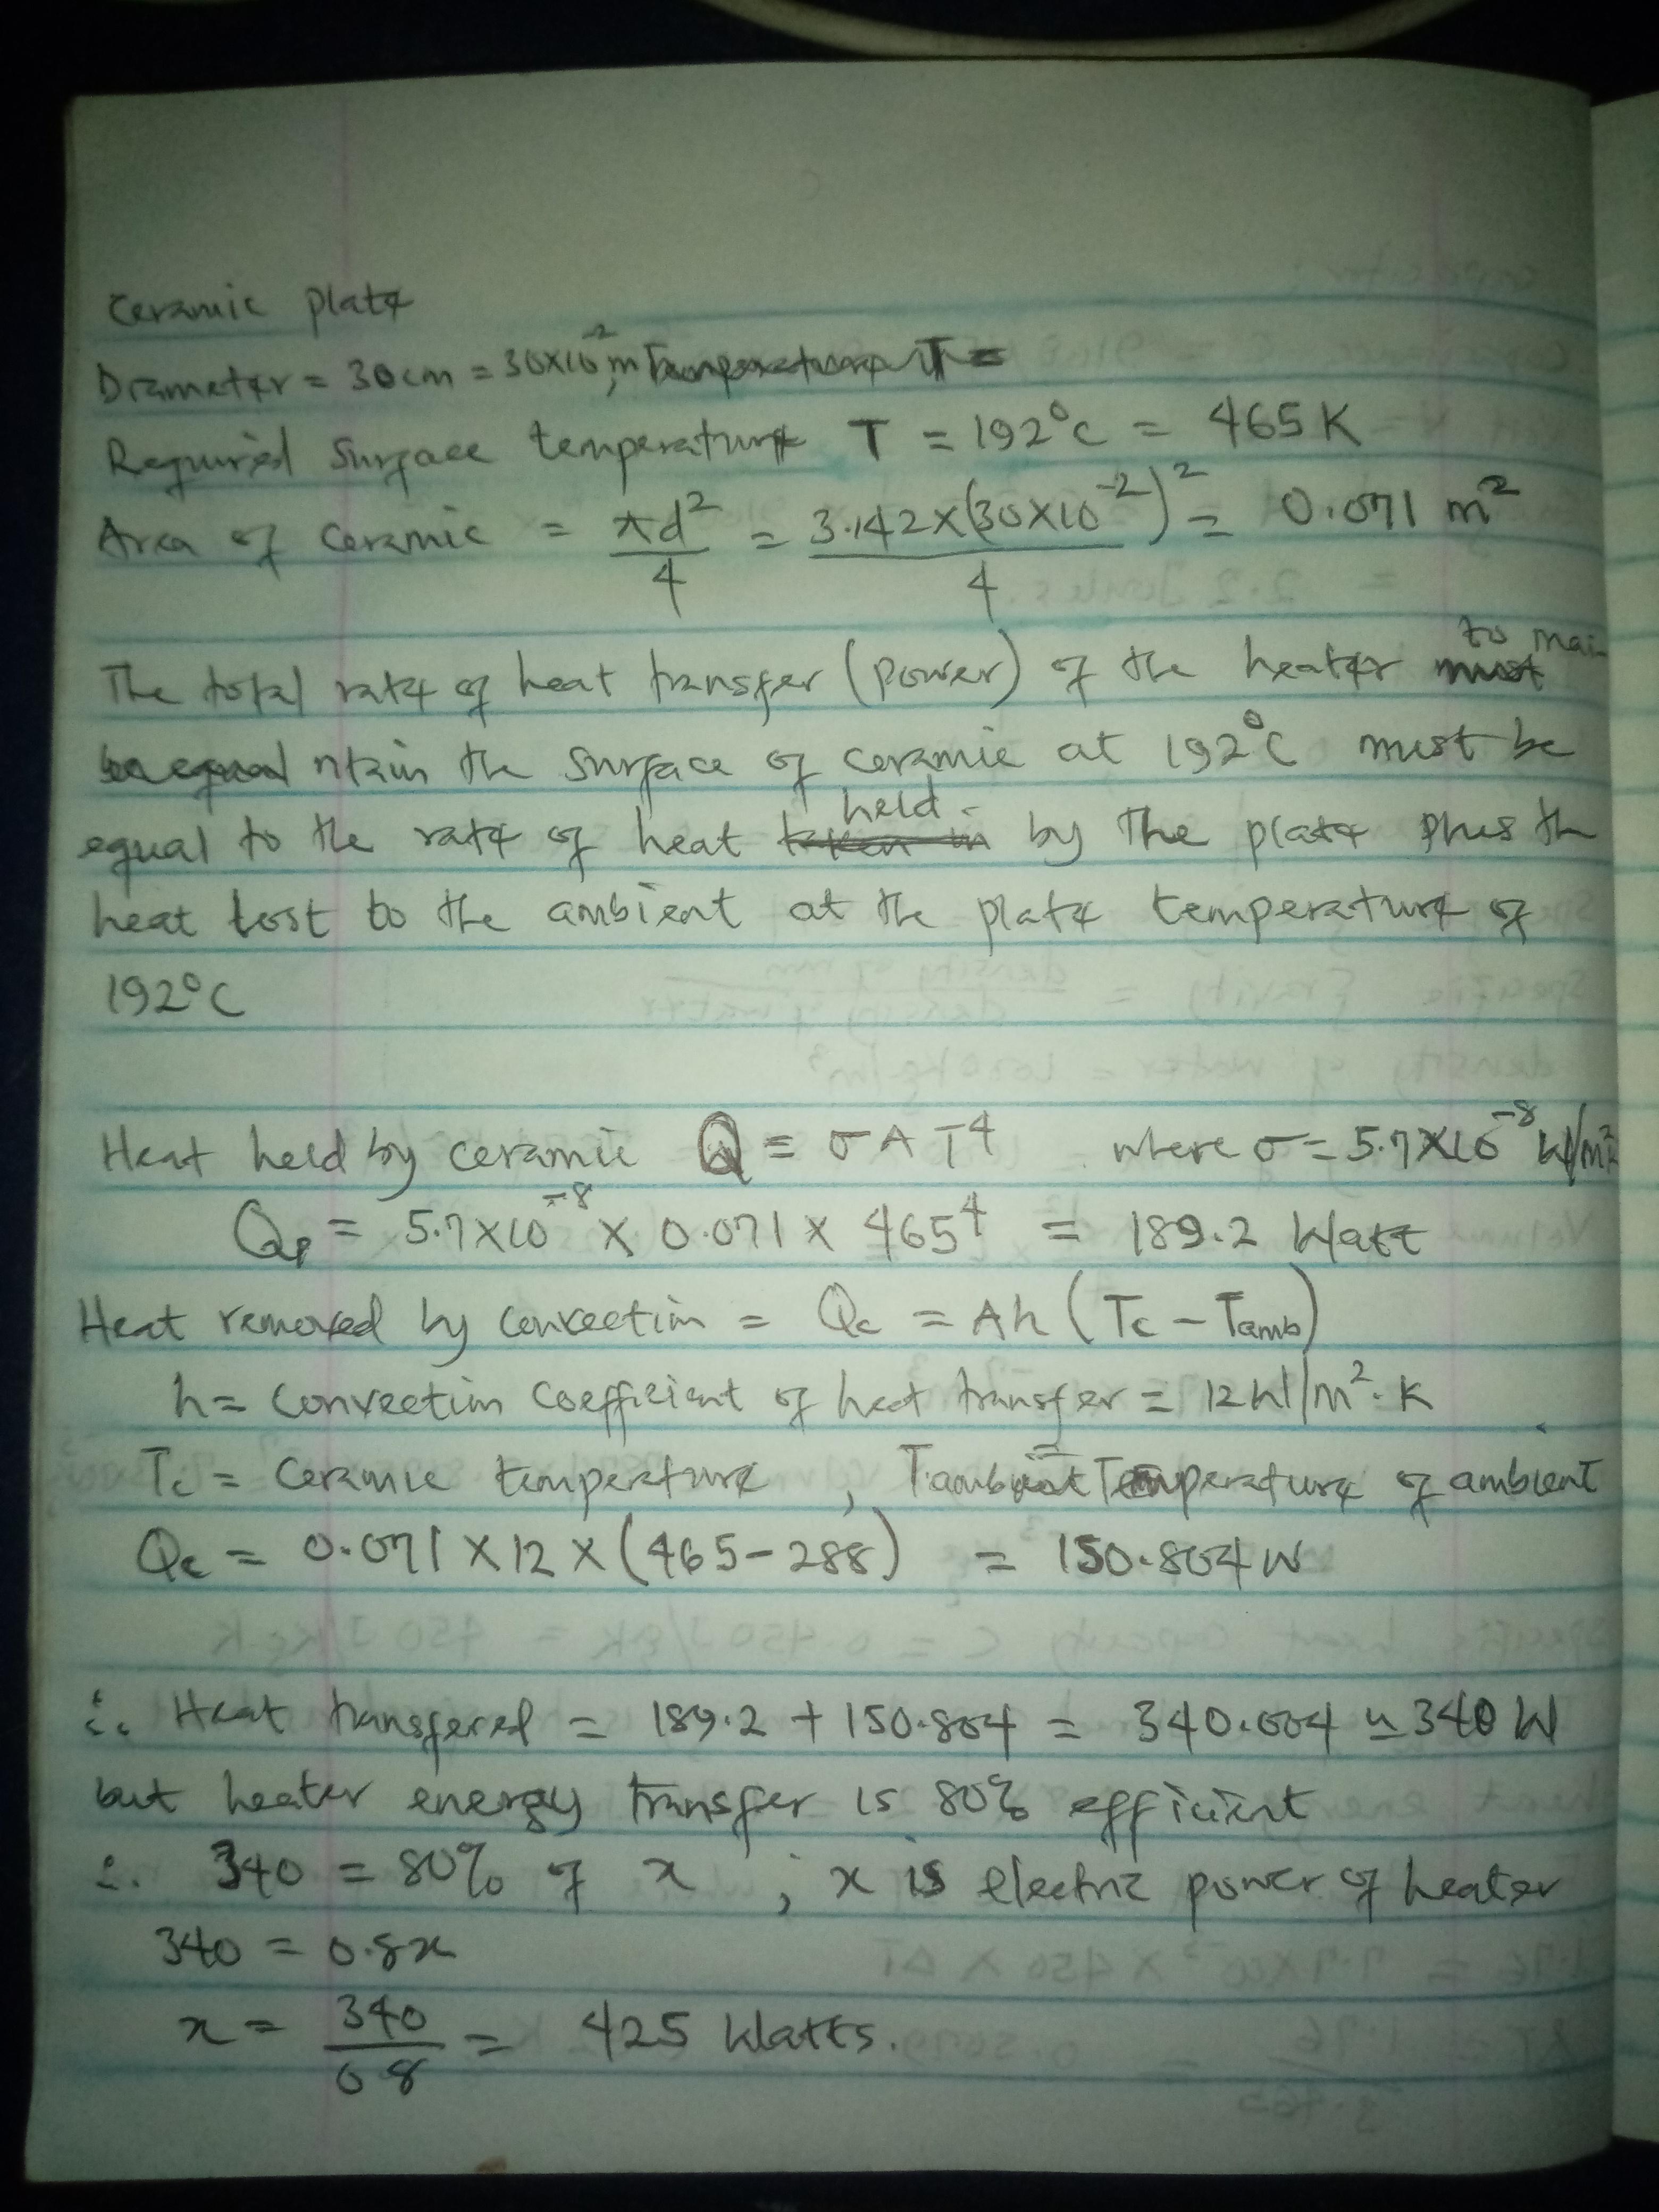 Ceramic plate
Diameter = 30cm = 30x10⁻²m, Temperature T =
Required surface temperature T = 192°C = 465K
Area of ceramic = πd²/4 = 3.142x(30x10⁻²)²/4 = 0.071 m²
The total rate of heat transfer (power) of the heater must to mai
be equal ntain the surface of ceramic at 192°C must be
equal to the rate of heat taken in held by the plate plus th
heat lost to the ambient at the plate temperature of
192°C
Heat held by ceramic Q = σAT⁴ where σ = 5.7x10⁻⁸ W/m²k
Qp = 5.7x10⁻⁸ x 0.071 x 465⁴ = 189.2 Watt
Heat removed by convection = Qc = Ah(Tc - Tamb)
h = convection coefficient of heat transfer = 12W/m².K
Tc = Ceramic temperature, Tambient = Temperature of ambient
Qc = 0.071 x 12 x (465-288) = 150.804W
∴ Heat transfered = 189.2 + 150.804 = 340.004 ≃ 340W
but heater energy transfer is 80% efficient
∴ 340 = 80% of x , x is electric power of heater
340 = 0.8x
x = 340/0.8 = 425 Watts.